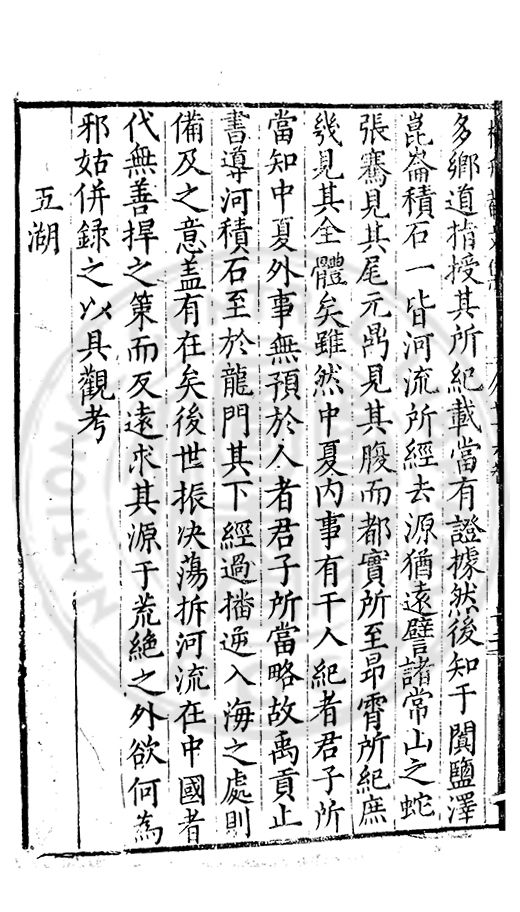 多鄉道指授其所紀載當有證據然後知于闐鹽澤
崑崙積石一皆河流所經去源猶遠譬諸常山之蛇
張騫見其尾元鼎見其腹而都實所至昂霄所紀庶
幾見其全體矣雖然中夏內事有干人紀者君子所
當知中夏外事無預於人者君子所當略故禹貢止
書導河積石至於龍門其下經過播逆入海之處則
備及之意盖有在矣後世振决蕩拆河流在中國者
代無善捍之策而反遠求其源于荒絶之外欲何為
邪姑併録之以具觀考
五湖
NATION